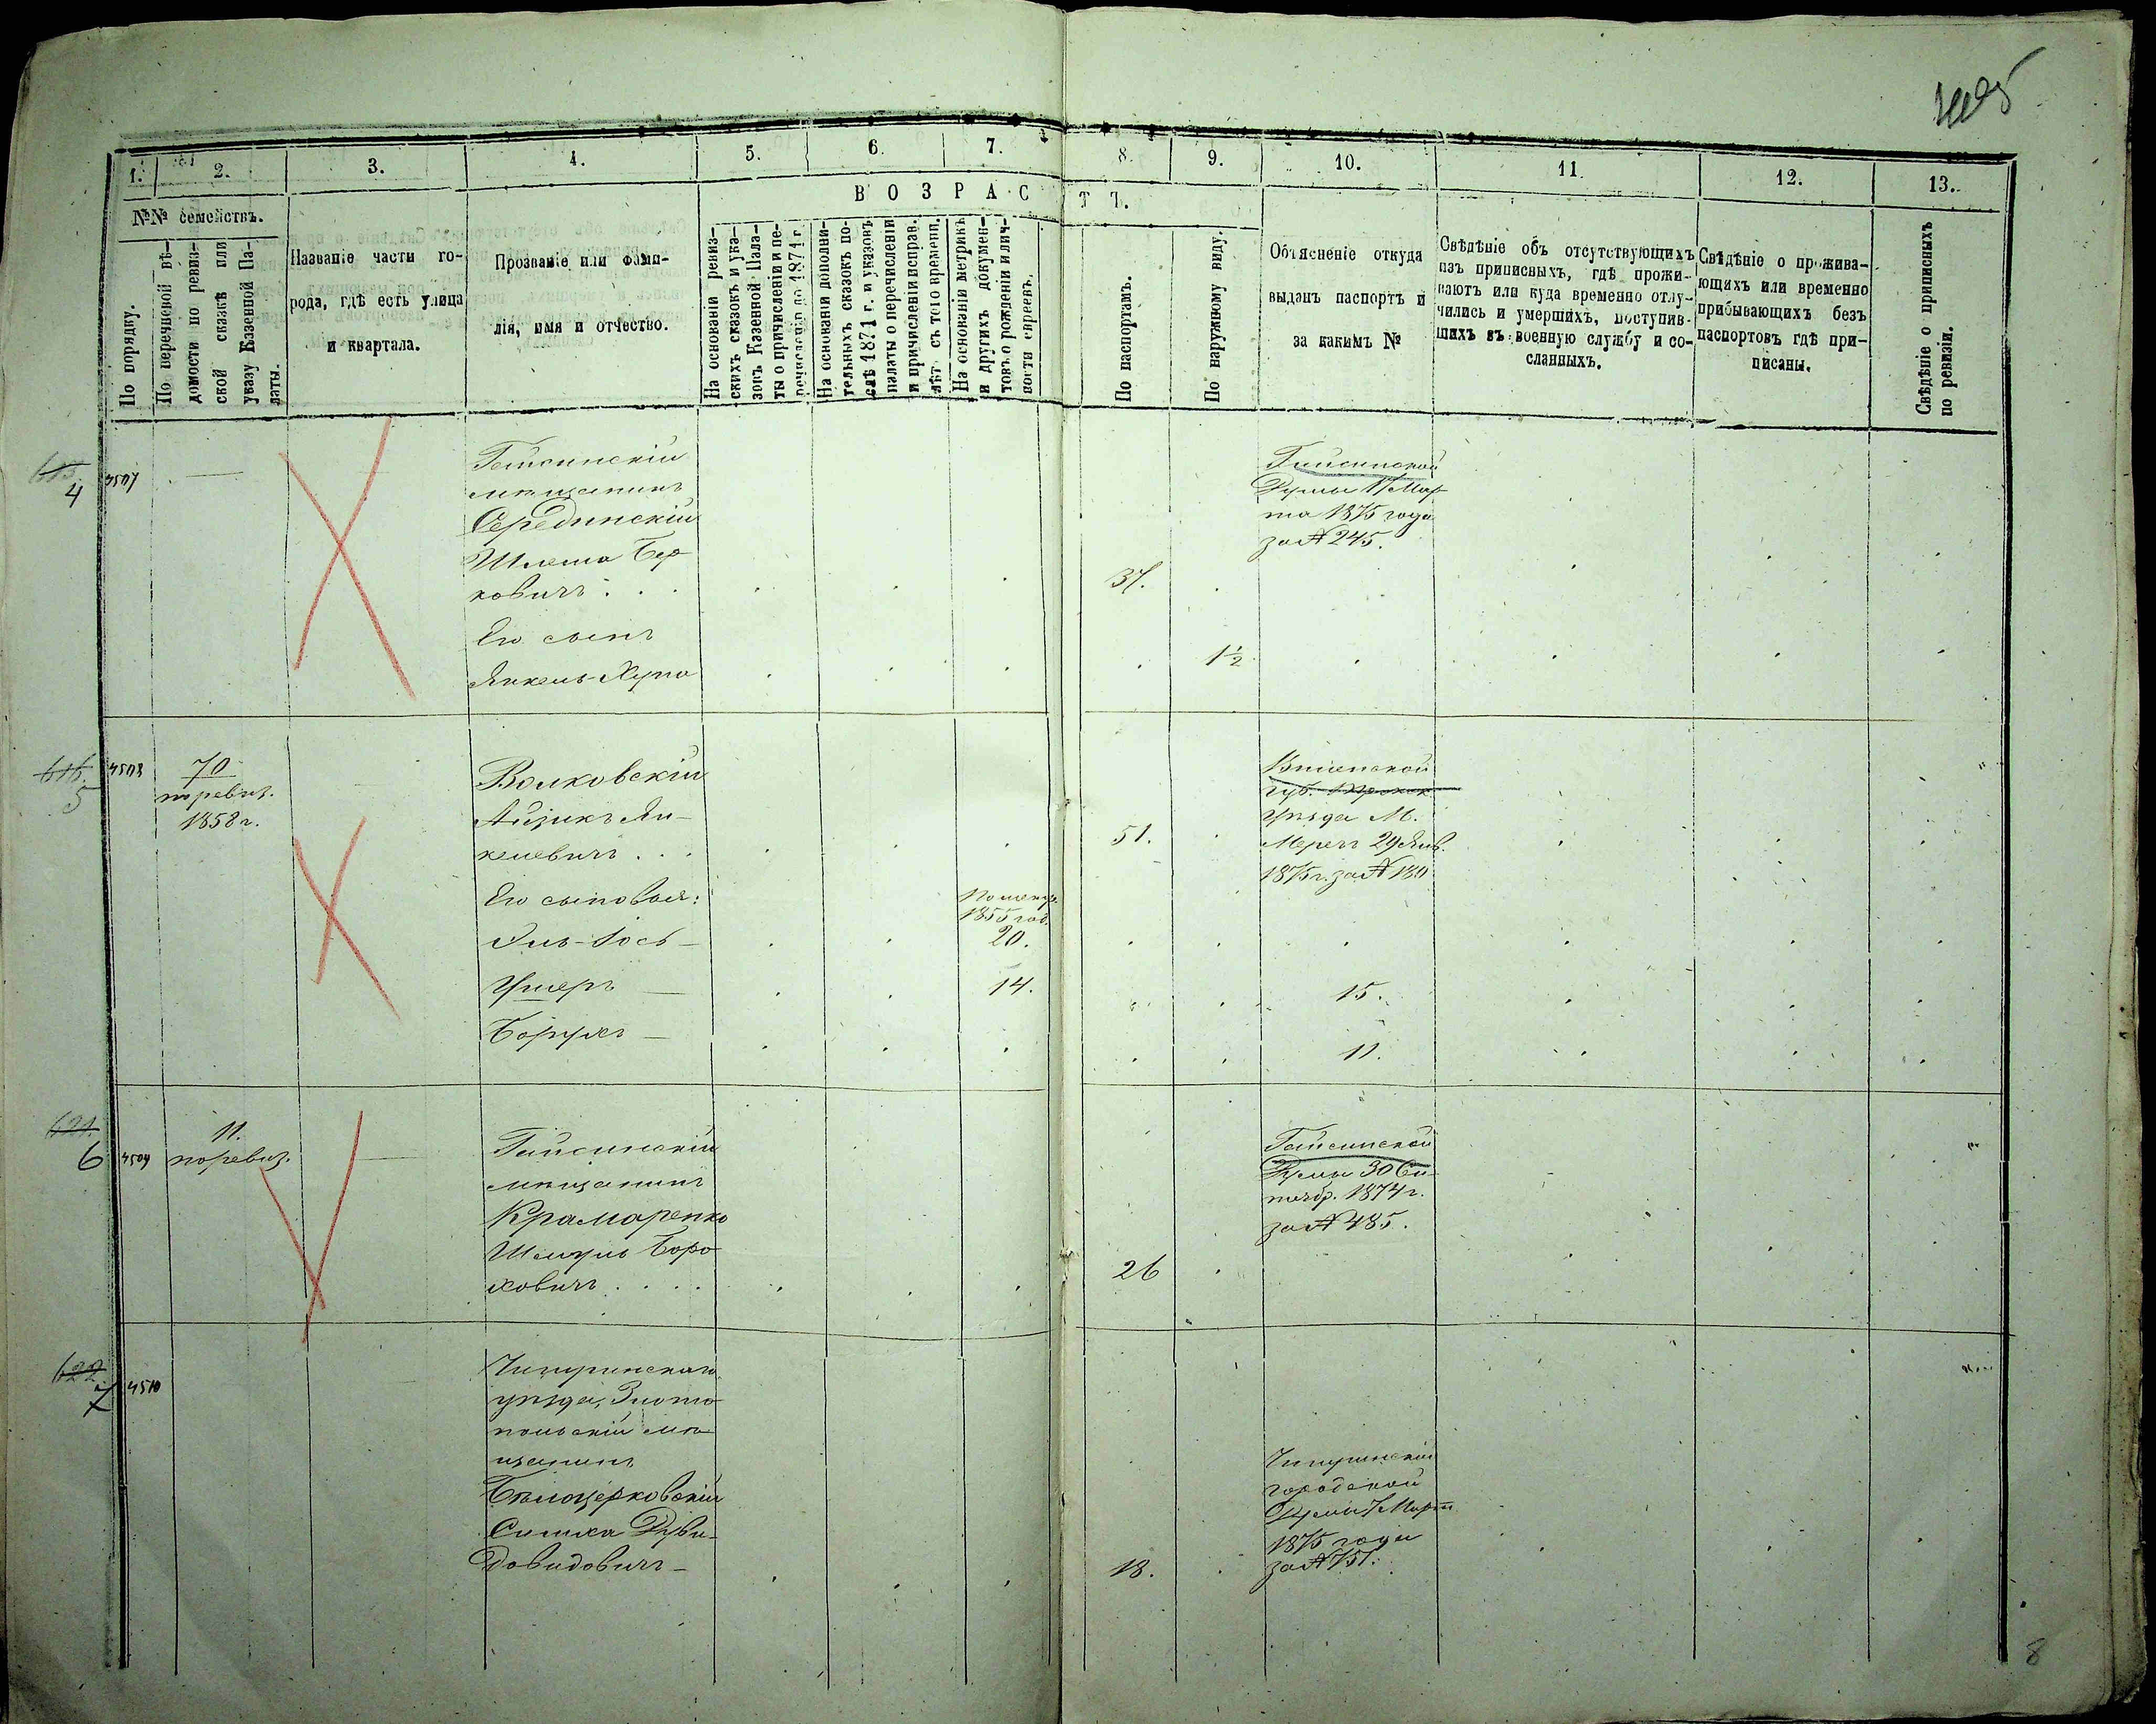 1. 2. 3. 4. 5. 6. 7. 8. 9. 10. 11. 12. 13.
ВОЗРАСТЪ.
№№ семействъ.
По порядку.
По перечневой вѣ-
домости по ревиз-
ской сказкѣ или
указу Казенной Па-
латы.
Названіе части го-
рода, гдѣ есть улица
и квартала.
Прозваніе или фами-
лія, имя и отчество.
На основаніи ревиз-
скихъ сказокъ и ука-
зовъ Казенной Пала-
ты о причисленіи и пе-
речисленіи до 1871 г.
На основаніи дополни-
тельныхъ сказокъ по-
слѣ 1871 г. и указовъ
палаты о перечисленіи
и причисленіи исправ.
лѣт. съ того времени.
На основаніи метрикъ
и другихъ докумен-
товъ о рожденіи и лич-
ности евреевъ.
По паспортамъ.
По наружному виду.
Объясненіе откуда
выданъ паспортъ и
за какимъ №
Свѣдѣніе объ отсутствующихъ
изъ приписныхъ, гдѣ прожи-
ваютъ или куда временно отлу-
чились и умершихъ, поступив-
шихъ въ военную службу и со-
сланныхъ.
Свѣдѣніе о прожива-
ющихъ или временно
прибывающихъ безъ
паспортовъ гдѣ при-
писаны.
Свѣдѣніе о приписныхъ
по ревизіи.
4
4507
Гайсинскій
мѣщанинъ
Серединскій
Шлема Бер
ковичъ . . .
37.
Гайсинской
Думы 17 Мар
та 1875 года
за № 245.
Его сынъ
Янкель-Хуна
1½
616.
5
4508
70
по ревиз.
1858 г.
Волковскій
Айзикъ Ян-
келевичъ . . .
51.
Виленской
губ.
Уѣзда М.
Меречъ 29 Янв.
1875 г. за № 180
Его сыновья:
По метр.
1855 год.
Эль-Іось —
20.
Ушеръ —
14.
15.
Борухъ —
11.
621.
6
4509
11.
по ревиз.
Гайсинскій
мѣщанинъ
Крамаренко
Шмуль Боро
ховичъ . . . .
26
Гайсинской
Думы 30 Сен
тябр. 1874 г.
за № 485.
622.
7
4510
Чигиринскаго
уѣзда, Злото
польскій мѣ
щанинъ
Бѣлоцерковскій
Симха Дуви-
довидовичъ —
18.
Чигиринской
городской
Думы 7 Марта
1875 года
за № 751.
8